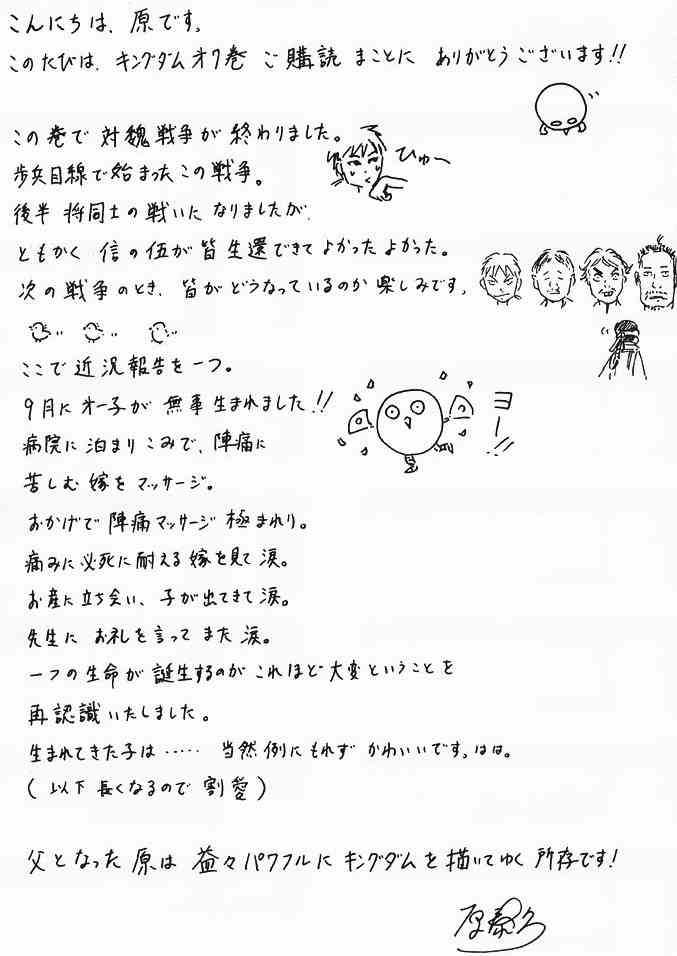 こんにちは、原です。
このたびは、キングダムオ7巻 ご購読 まことに ありがとうございます!!
この巻で 対魏戦争が 終わりました。
ひゅ〜
歩兵目線で始まったこの戦争。
後半 将同士の戦いに なりましたが、
ともかく 信の伍が皆生還できて よかった よかった。
次の戦争のとき、皆がどうなっているのか楽しみです。
ここで近況報告を一つ。
9月にオ一子が無事生まれました!!
ヨーッ!!
病院に泊まりこみで、陣痛に
苦しむ嫁をマッサージ。
おかげで陣痛マッサージ極まれり。
痛みに必死に耐える嫁を見て涙。
お産に立ち会い、子が出てきて涙。
先生に お礼を言って また涙。
一つの生命が誕生するのが これほど大変ということを
再認識いたしました。
生まれてきた子は…… 当然例にもれず かわいいです。はは。
(以下 長くなるので割愛)
父となった原は 益々パワフルに キングダムを描いてゆく 所存です!
原泰久